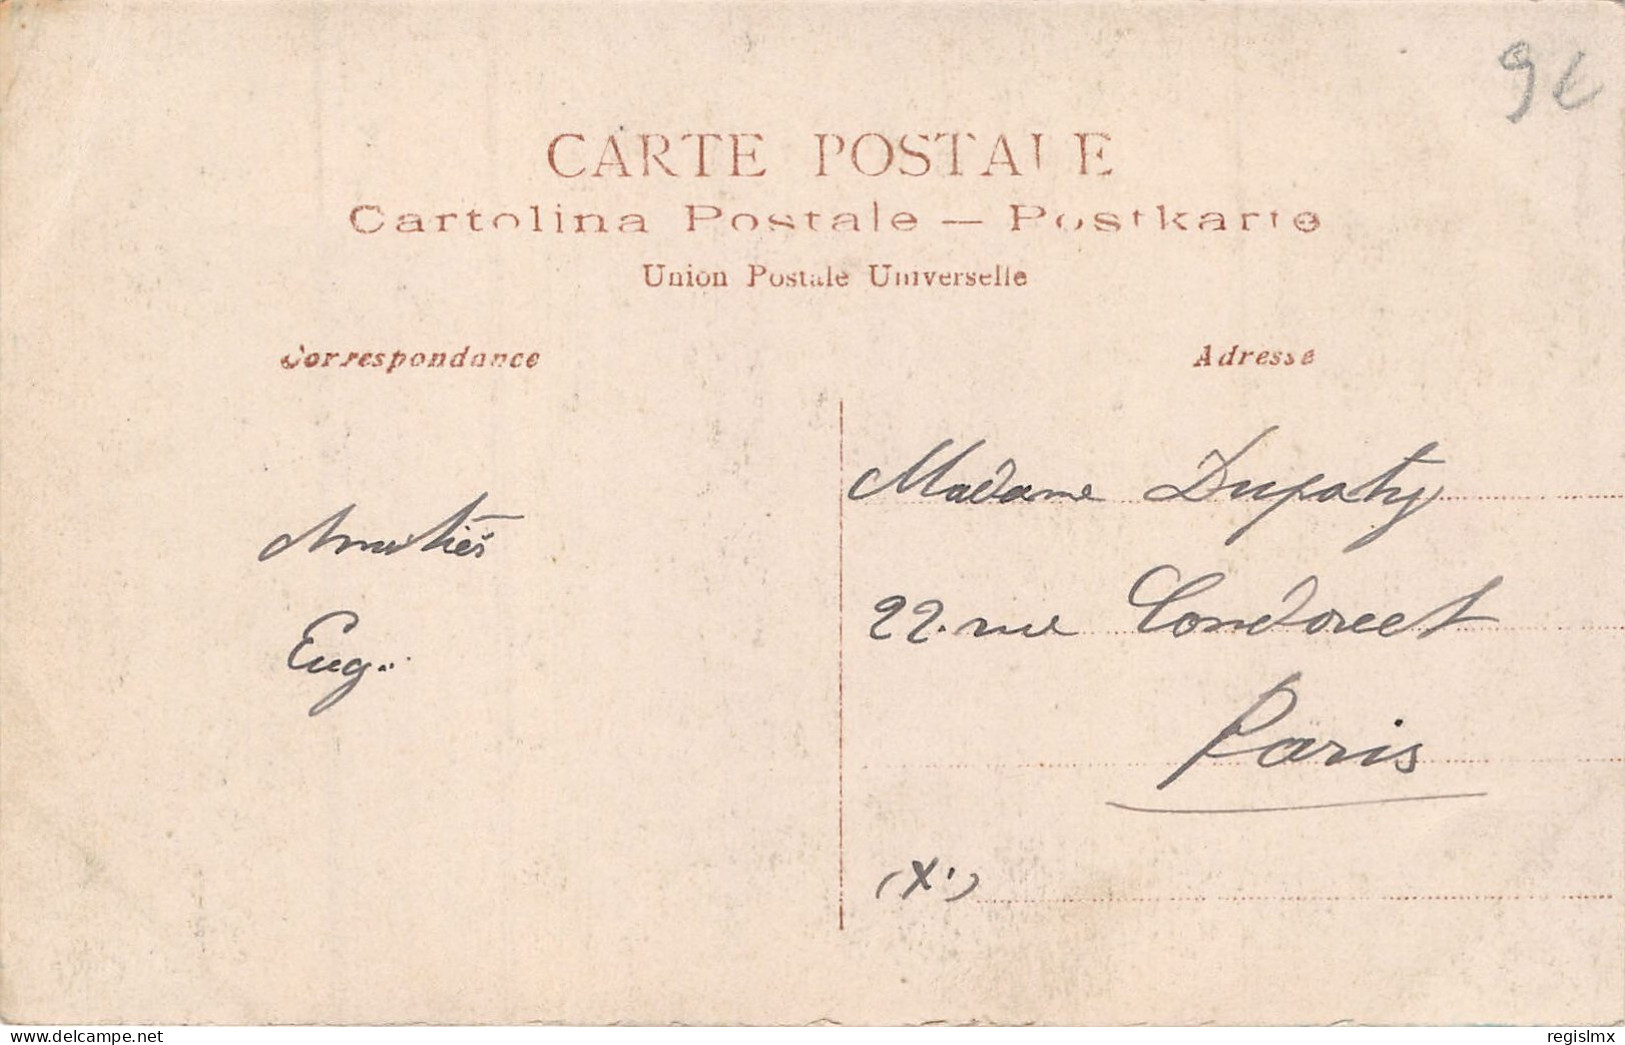 9€
CARTE POSTALE
Cartolina Postale — Postkarte
Union Postale Universelle
Correspondance
Adresse
Amitiés
Eug.
Madame Dupaty
22. rue Condorcet
Paris
(X.)
www.delcampe.net
regislmx